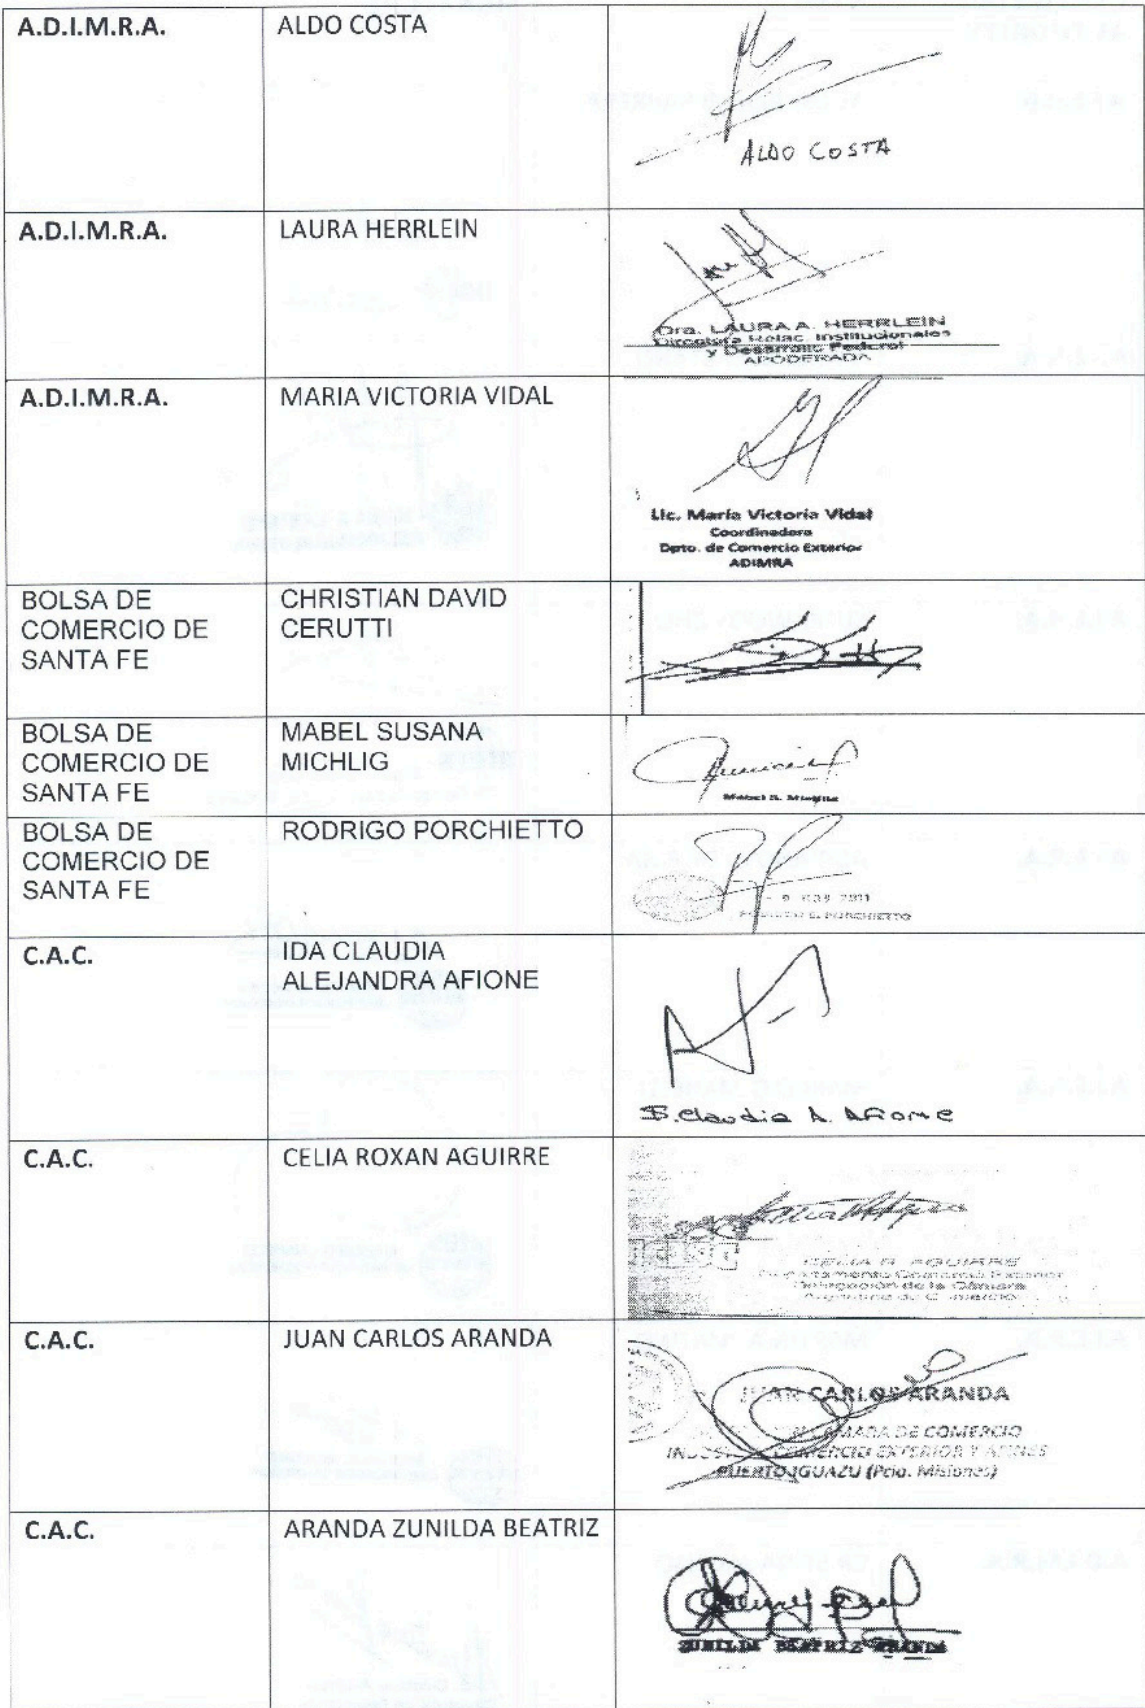 A.D.I.M.R.A.
ALDO COSTA
ALDO COSTA
A.D.I.M.R.A.
LAURA HERRLEIN
Dra. LAURA A. HERRLEIN
Directora Relac. Institucionales
y Desarrollo Federal
APODERADA
A.D.I.M.R.A.
MARIA VICTORIA VIDAL
Lic. María Victoria Vidal
Coordinadora
Dpto. de Comercio Exterior
ADIMRA
BOLSA DE
COMERCIO DE
SANTA FE
CHRISTIAN DAVID
CERUTTI
BOLSA DE
COMERCIO DE
SANTA FE
MABEL SUSANA
MICHLIG
Mabel S. Michlig
BOLSA DE
COMERCIO DE
SANTA FE
RODRIGO PORCHIETTO
PORCHIETTO
C.A.C.
IDA CLAUDIA
ALEJANDRA AFIONE
Claudia A. Afione
C.A.C.
CELIA ROXAN AGUIRRE
CELIA R. AGUIRRE
Departamento Comercio Exterior
Delegación de la Cámara
Argentina de Comercio
C.A.C.
JUAN CARLOS ARANDA
JUAN CARLOS ARANDA
CAMARA DE COMERCIO
COMERCIO EXTERIOR Y AFINES
PUERTO IGUAZU (Pcia. Misiones)
C.A.C.
ARANDA ZUNILDA BEATRIZ
ZUNILDA BEATRIZ ARANDA